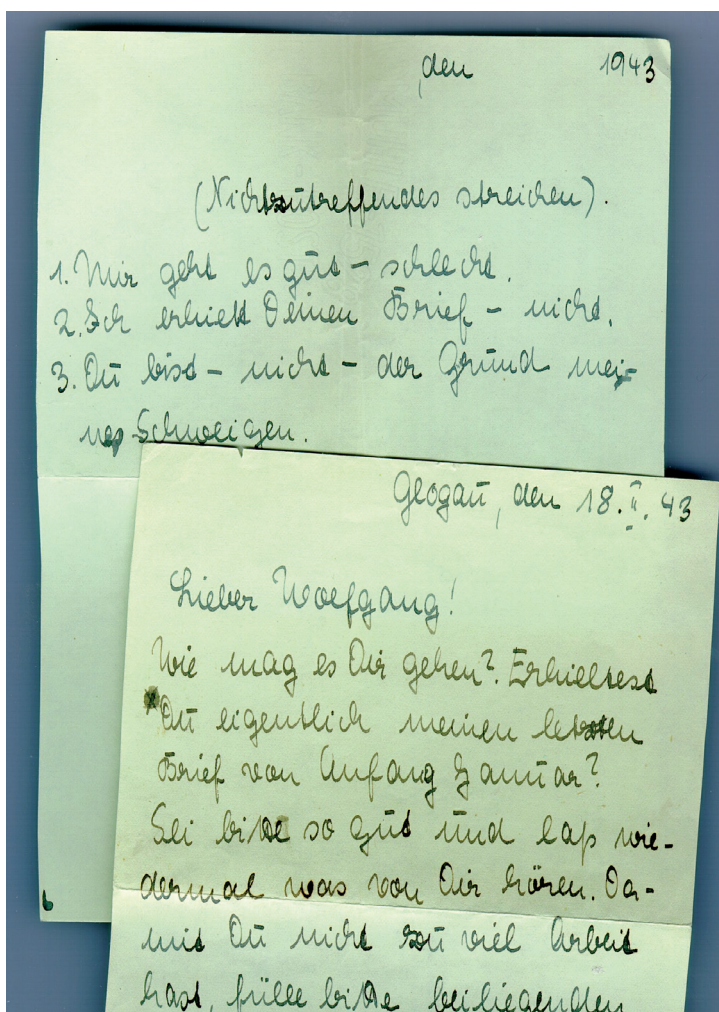 , den 1943
(Nichtzutreffendes streichen).
1. Mir geht es gut – schlecht.
2. Ich erhielt Deinen Brief – nicht.
3. Du bist – nicht – der Grund mei-
nes Schweigen.
Glogau, den 18. II. 43
Lieber Wolfgang!
Wie mag es Dir gehen? Erhieltest
Du eigentlich meinen letzten
Brief von Anfang Januar?
Sei bitte so gut und laß wie-
dermal was von Dir hören. Da-
mit Du nicht zu viel Arbeit
hast, fülle bitte beiliegenden